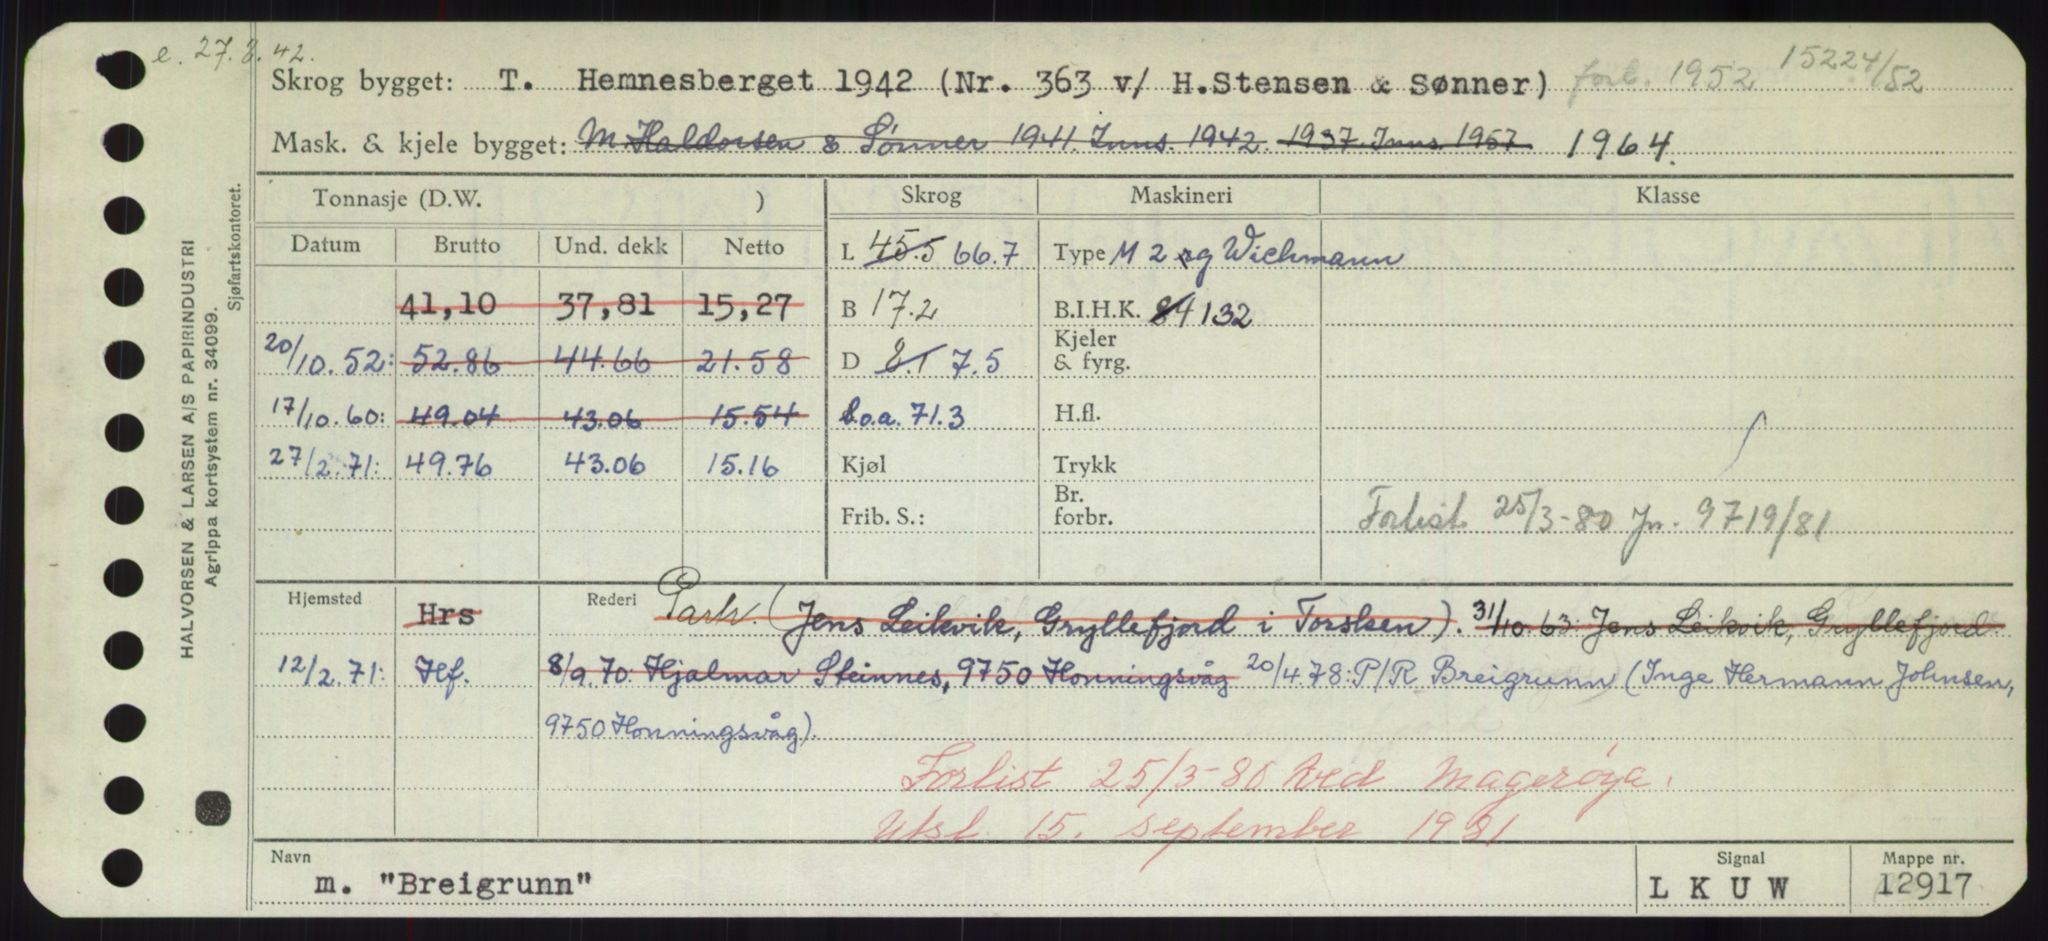 e. 27.8.42.
Skrog bygget: T. Hemnesberget 1942 (Nr. 363 v/ H.Stensen & Sønner) forl. 1952 15224/52
Mask. & kjele bygget: M Haldorsen & Sønner 1941. Inns. 1942. 1937. Inns 1957 1964.
Tonnasje (D.W. ) Skrog Maskineri Klasse
Datum Brutto Und. dekk Netto L 45.5 66.7 Type M 2 rg Wichmann
41,10 37,81 15,27 B 17.2 B.I.H.K. 84 132
20/10.52: 52.86 44.66 21.58 D 8.1 7.5 Kjeler & fyrg.
17/10.60: 49.04 43.06 15.54 l.o.a. 71.3 H.fl.
27/2.71: 49.76 43.06 15.16 Kjøl Trykk
Frib. S.: Br. forbr. Forlist 25/3-80 Jn. 9719/81
Hjemsted Hrs Rederi Partr. (Jens Leikvik, Gryllefjord i Torsken). 31/10.63: Jens Leikvik, Gryllefjord.
12/2.71: Hf. 8/9.70: Hjalmar Steinnes, 9750 Honningsvåg 20/4.78: P/R Breigrunn (Inge Hermann Johnsen,
9750 Honningsvåg).
Forlist 25/3-80 ved Magerøya.
Utsl. 15. september 1981
Navn Signal Mappe nr.
m. "Breigrunn" L K U W 12917
HALVORSEN & LARSEN A/S PAPIRINDUSTRI
Agrippa kortsystem nr. 34099.
Sjøfartskontoret.